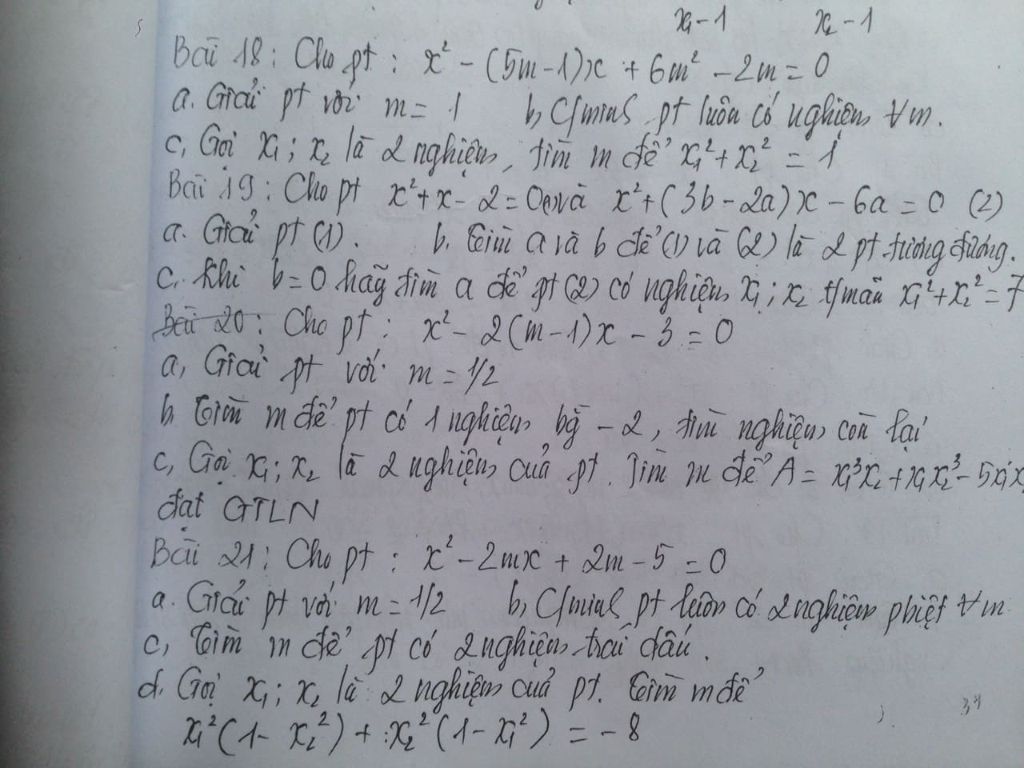 x₁-1 x₂-1
Bài 18: Cho pt: x² - (5m-1)x + 6m² - 2m = 0
a. Giải pt với m = 1 b, C/minh pt luôn có nghiệm ∀m.
c, Gọi x₁; x₂ là 2 nghiệm, tìm m để x₁²+x₂² = 1
Bài 19: Cho pt x²+x-2=0(1) và x²+(3b-2a)x-6a=0 (2)
a. Giải pt (1). b. Tìm a và b để (1) và (2) là 2 pt tương đương.
c. Khi b=0 hãy tìm a để pt(2) có nghiệm x₁; x₂ t/mãn x₁²+x₂²=7
Bài 20: Cho pt: x²-2(m-1)x-3=0
a, Giải pt với m=1/2
b. Tìm m để pt có 1 nghiệm bg -2, tìm nghiệm còn lại
c, Gọi x₁; x₂ là 2 nghiệm của pt. Tìm m để A = x₁³x₂+x₁x₂³-5x₁x
đạt GTLN
Bài 21: Cho pt: x²-2mx+2m-5=0
a. Giải pt với m=1/2 b, C/minh pt luôn có 2 nghiệm phiệt ∀m
c, Tìm m để pt có 2 nghiệm trái dấu.
d. Gọi x₁; x₂ là 2 nghiệm của pt. Tìm m để
x₁²(1-x₂²)+x₂²(1-x₁²) = -8